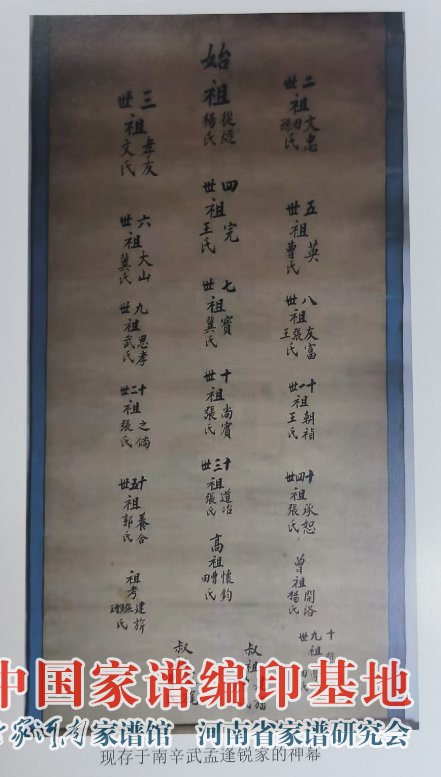 始祖從
楊氏
二世祖文忠
田氏
三世祖孝友
文氏
四世祖完
王氏
五世祖英
曹氏
六世祖大山
冀氏
七世祖賓
冀氏
八世祖友富
張氏
王氏
九世祖思孝
武氏
十世祖尚賓
張氏
十一世祖朝禎
王氏
十二世祖之倘
張氏
十三世祖道冶
張氏
十四世祖承恕
張氏
十五世祖養合
郭氏
高祖懷鈞
曹氏
田
曾祖開洛
楊氏
祖考建旂
氏
十九世祖
氏
叔祖
叔
中国家谱编印基地
家谱馆 河南省家谱研究会
现存于南辛武孟逢锐家的神幕